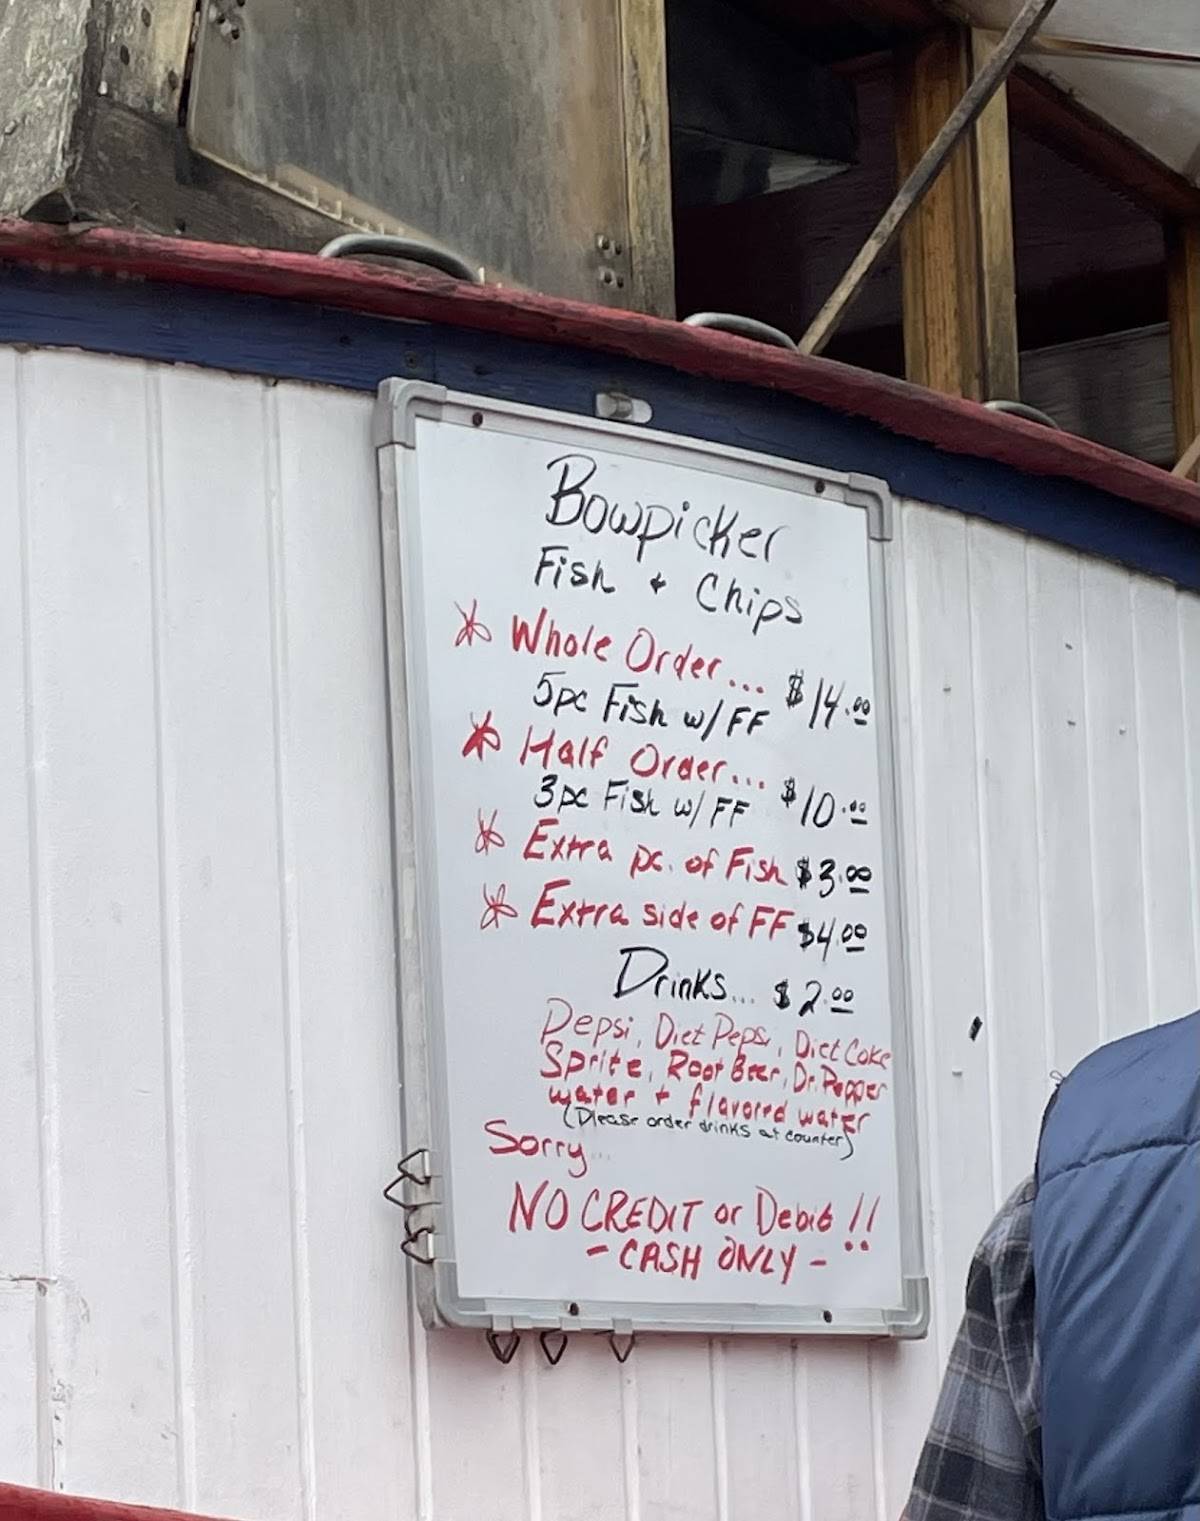 Bowpicker
Fish + Chips
* Whole Order... $14.00
5pc Fish w/ FF
* Half Order... $10.00
3pc Fish w/ FF
* Extra pc. of Fish $3.00
* Extra side of FF $4.00
Drinks... $2.00
Pepsi, Diet Pepsi, Diet Coke
Sprite, Root Beer, Dr. Pepper
water + flavored water
(Please order drinks at counter)
Sorry...
NO CREDIT or Debit!!
- CASH ONLY -